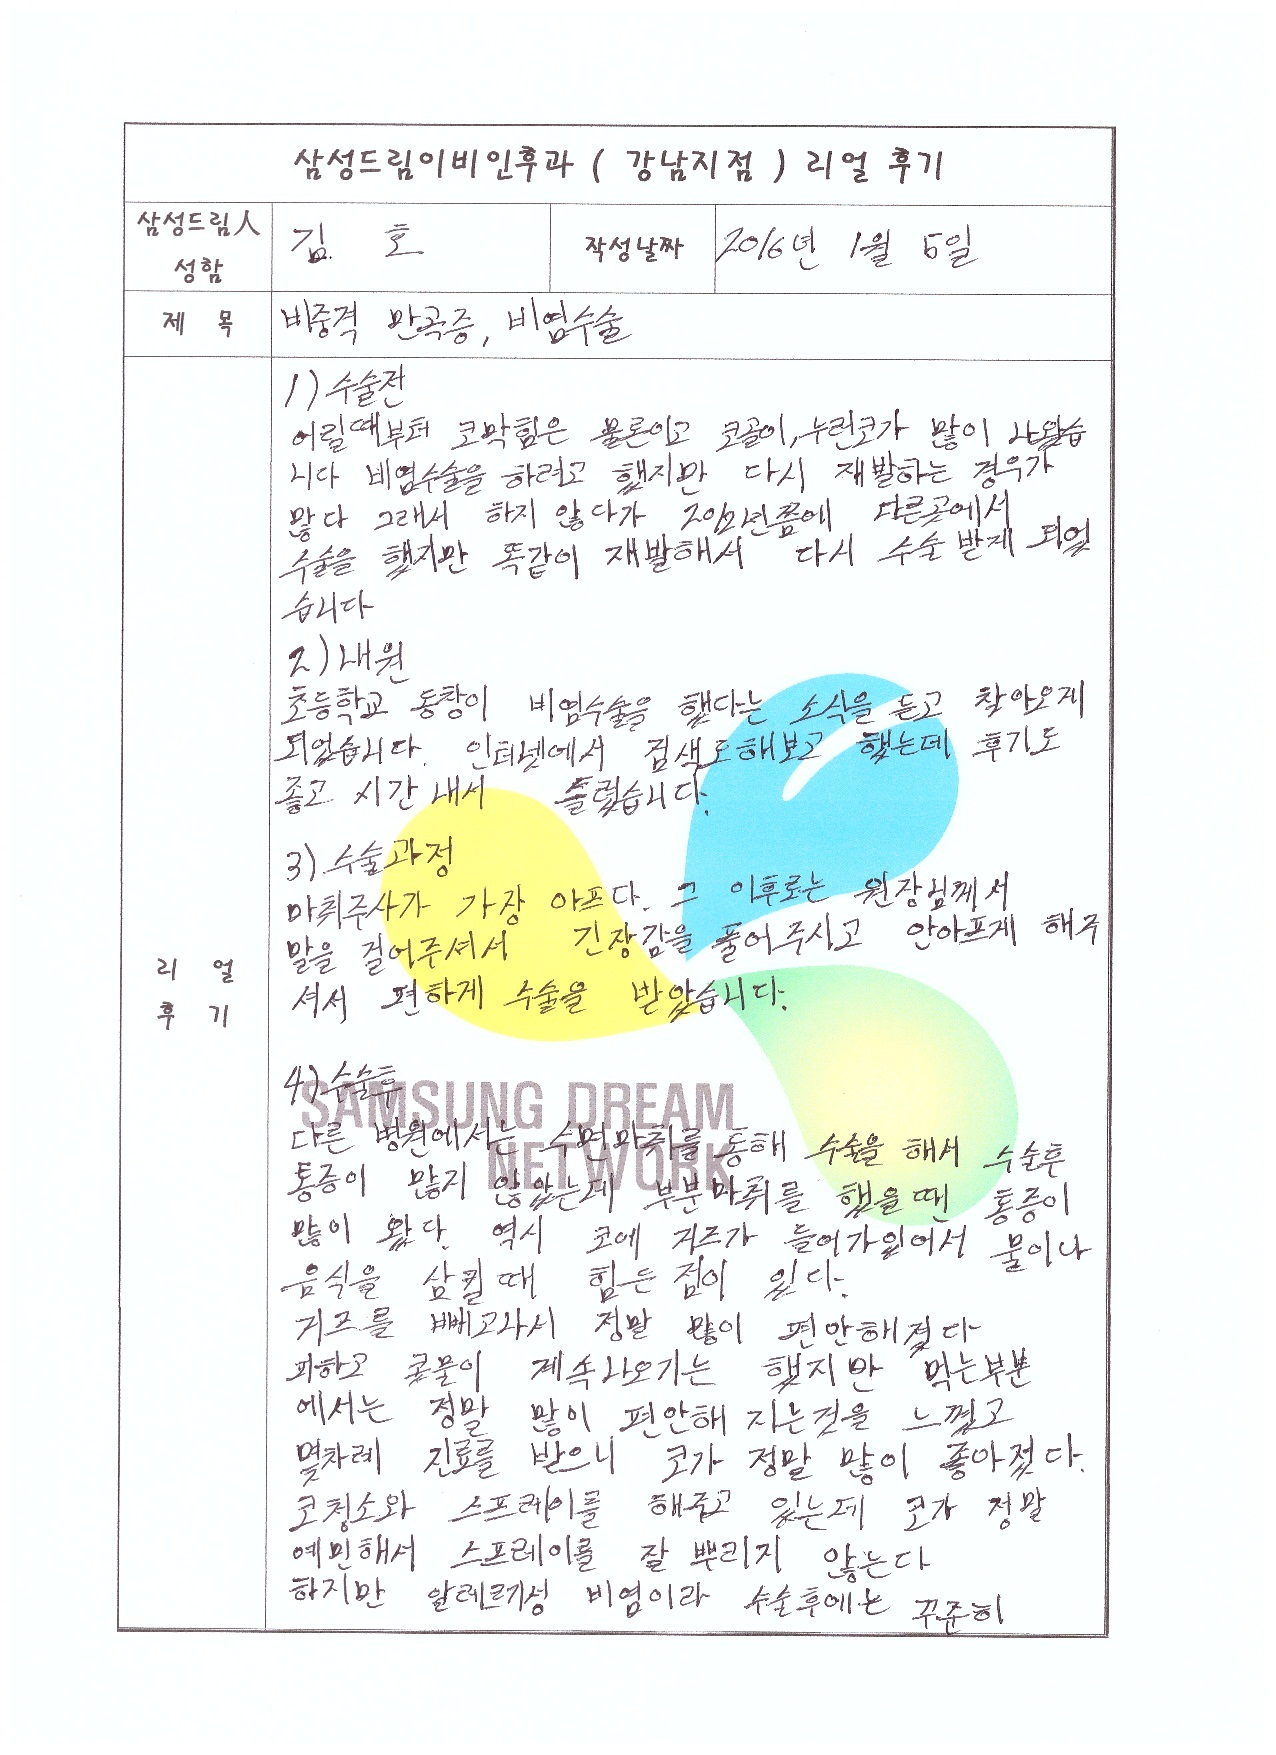 삼성드림이비인후과 ( 강남지점 ) 리얼 후기
삼성드림人 성함
김 호
작성날짜
2016년 1월 5일
제 목
비중격 만곡증, 비염수술
리 얼
후 기
1) 수술전
어릴때부터 코막힘은 물론이고 코골이, 누런코가 많이 나왔습
니다 비염수술을 하려고 했지만 다시 재발하는 경우가
많다 그래서 하지 않다가 2012년쯤에 다른곳에서
수술을 했지만 똑같이 재발해서 다시 수술 받게 되었
습니다
2) 내원
초등학교 동창이 비염수술을 했다는 소식을 듣고 찾아오게
되었습니다. 인터넷에서 검색도해보고 했는데 후기도
좋고 시간 내서 들렸습니다.
3) 수술과정
마취주사가 가장 아프다. 그 이후로는 원장님께서
말을 걸어주셔서 긴장감을 풀어주시고 안아프게 해주
셔서 편하게 수술을 받았습니다.
4) 수술후
SAMSUNG DREAM
NETWORK
다른 병원에서는 수면마취를 통해 수술을 해서 수술후
통증이 많지 않았는데 부분마취를 했을땐 통증이
많이 왔다. 역시 코에 거즈가 들어가있어서 물이나
음식을 삼킬때 힘든점이 있다.
거즈를 빼고나서 정말 많이 편안해졌다
피하고 콧물이 계속나오기는 했지만 먹는부분
에서는 정말 많이 편안해 지는것을 느꼈고
몇차례 진료를 받으니 코가 정말 많이 좋아졌다.
코청소와 스프레이를 해주고 있는데 코가 정말
예민해서 스프레이를 잘 뿌리지 않는다
하지만 알레르기성 비염이라 수술후에는 꾸준히